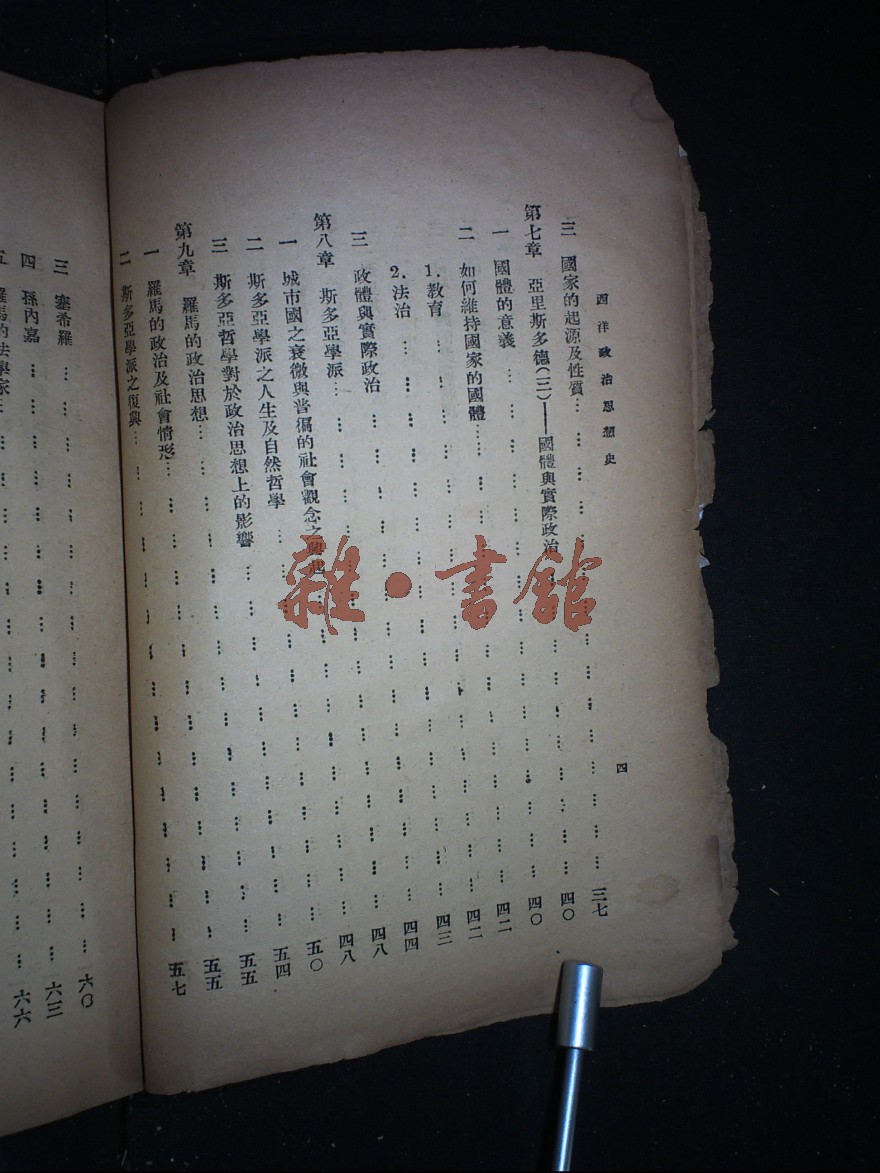 西洋政治思想史
四
三 國家的起源及性質……三七
第七章 亞里斯多德(三)——國體與實際政治……四〇
一 國體的意義……四〇
二 如何維持國家的國體……四二
1.教育……四二
2.法治……四三
三 政體與實際政治……四四
第八章 斯多亞學派……四八
一 城市國之衰微與普徧的社會觀念之興起……四八
二 斯多亞學派之人生及自然哲學……五〇
三 斯多亞哲學對於政治思想上的影響……五四
第九章 羅馬的政治思想……五五
一 羅馬的政治及社會情形……五五
二 斯多亞學派之復興……五七
三 塞希羅……六〇
四 孫內嘉……六三
五 羅馬的法學家……六六
雜·書館